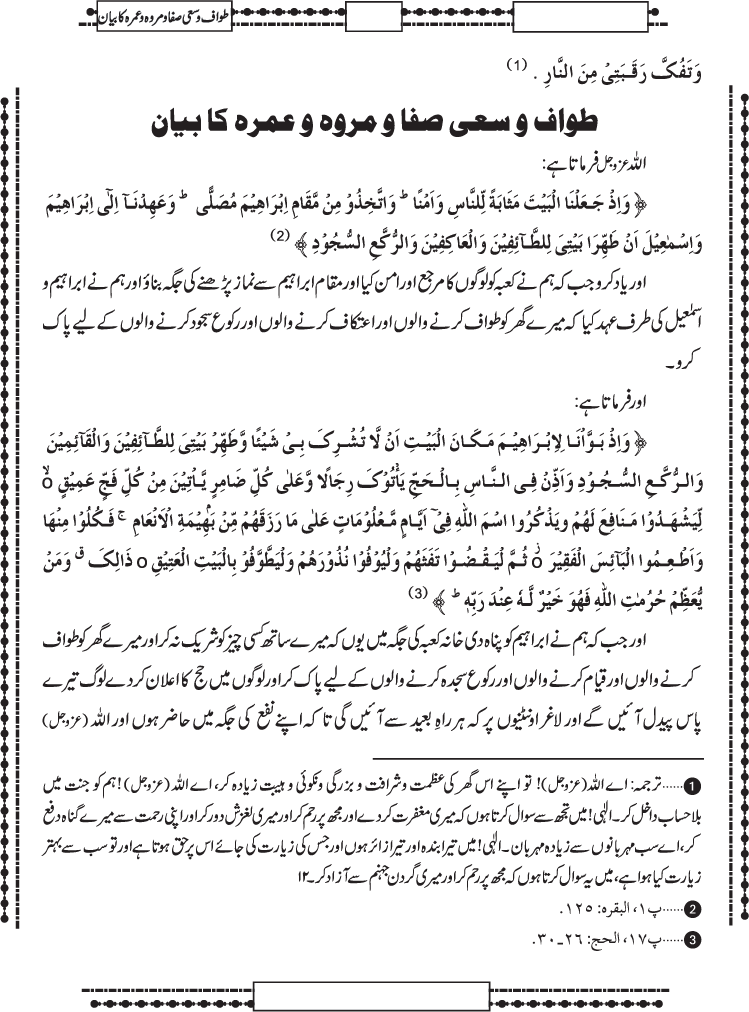 طواف و سعی صفا و مروہ و عمرہ کا بیان
وَتَفُکَّ رَقَبَتِیْ مِنَ النَّارِ . (1)
طواف و سعی صفا و مروہ و عمرہ کا بیان
اللہ عزوجل فرماتا ہے:
﴿ وَاِذْ جَعَلْنَا الْبَیْتَ مَثَابَةً لِّلنَّاسِ وَاَمْنًا ؕ وَاتَّخِذُوْ مِنْ مَّقَامِ اِبْرَاهِیْمَ مُصَلًّی ؕ وَعَهِدْنَـآ اِلٰٓی اِبْرَاهِیْمَ
وَاِسْمٰعِیْلَ اَنْ طَهِّرَا بَیْتِیَ لِلطَّـآئِفِیْنَ وَالْعَاکِفِیْنَ وَالرُّکَّعِ السُّجُوْدِ ﴾ (2)
اور یاد کرو جب کہ ہم نے کعبہ کو لوگوں کا مرجع اور امن کیا اور مقام ابراہیم سے نماز پڑھنے کی جگہ بناؤ اور ہم نے ابراہیم و
اسمٰعیل کی طرف عہد کیا کہ میرے گھر کو طواف کرنے والوں اور اعتکاف کرنے والوں اور رکوع سجود کرنے والوں کے لیے پاک
کرو۔
اور فرماتا ہے:
﴿ وَاِذْ بَوَّاْنَـا لِاِبْـرَاهِیْـمَ مَکَـانَ الْبَیْـتِ اَنْ لَّا تُشْـرِکَ بِـیْ شَیْئًا وَّطَهِّرْ بَیْتِیَ لِلطَّـآئِفِیْنَ وَالْقَآئِمِیْنَ
وَالرُّکَّعِ السُّجُوْدِ وَاَذِّنْ فِـی النَّـاسِ بِـالْحَجِّ یَاْتُوْکَ رِجَالًا وَّعَلٰی کُلِّ ضَامِرٍ یَّاْتِیْنَ مِنْ کُلِّ فَجٍّ عَمِیْقٍ ۙo
لِّیَشْهَـدُوْا مَنَـافِعَ لَهُمْ وَیَذْکُرُوا اسْمَ اللّٰهِ فِیْٓ اَیَّـامٍ مَّعْلُوْمَاتٍ عَلٰی مَا رَزَقَهُمْ مِّنْ بَهِیْمَةِ الْاَنْعَامِ ۚ فَکُلُوْا مِنْهَا
وَاَطْعِـمُوا الْبَآئِسَ الْفَقِیْرَ ۫o ثُمَّ لْیَـقْـضُـوْا تَفَثَهُمْ وَلْیُوْفُوْا نُذُوْرَهُمْ وَلْیَطَّوَّفُوْ بِالْبَیْتِ الْعَتِیْقِ o ذَالِکَ ۗ وَمَنْ
یُّعَظِّمْ حُرُمٰتِ اللّٰهِ فَهُوَ خَیْرٌ لَّـهٗ عِنْدَ رَبِّهٖ ؕ ﴾ (3)
اور جب کہ ہم نے ابراہیم کو پناہ دی خانہ کعبہ کی جگہ میں یوں کہ میرے ساتھ کسی چیز کو شریک نہ کر اور میرے گھر کو طواف
کرنے والوں اور قیام کرنے والوں اور رکوع سجدہ کرنے والوں کے لیے پاک کر اور لوگوں میں حج کا اعلان کر دے لوگ تیرے
پاس پیدل آئیں گے اور لاغر اونٹنیوں پر کہ ہر راہِ بعید سے آئیں گی تا کہ اپنے نفع کی جگہ میں حاضر ہوں اور اللہ (عزوجل)
1......ترجمہ: اے اللہ (عزوجل)! تو اپنے اس گھر کی عظمت و شرافت و بزرگی و نکوئی و ہیبت زیادہ کر، اے اللہ (عزوجل)! ہم کو جنت میں
بلا حساب داخل کر۔ الٰہی! میں تجھ سے سوال کرتا ہوں کہ میری مغفرت کر دے اور مجھ پر رحم کر اور میری لغزش دور کر اور اپنی رحمت سے میرے گناہ دفع
کر، اے سب مہربانوں سے زیادہ مہربان۔ الٰہی! میں تیرا بندہ اور تیرا زائر ہوں اور جس کی زیارت کی جائے اس پر حق ہوتا ہے اور تو سب سے بہتر
زیارت کیا ہوا ہے، میں یہ سوال کرتا ہوں کہ مجھ پر رحم کر اور میری گردن جہنم سے آزاد کر۔۱۲
2......پ۱، البقرہ: ۱۲۵.
3......پ۱۷، الحج: ۲۶۔۳۰.